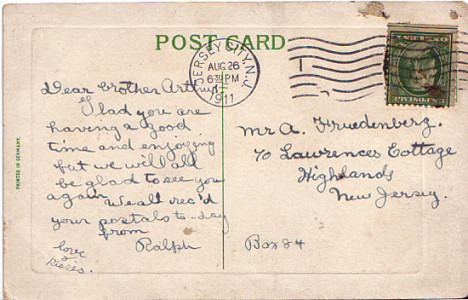 POST CARD
JERSEY CITY, N.J.
AUG 26
630 PM
1911
Dear Brother Arthur:-
Glad you are
having a good
time and enjoying
but we will all
be glad to see you
again. We all rec'd
your postals to-day
from
Ralph
love
&
kisses.
PRINTED IN GERMANY.
Mr A. Fruedenberg.
70 Lawrences Cottage
Highlands
New Jersey.
Box 84